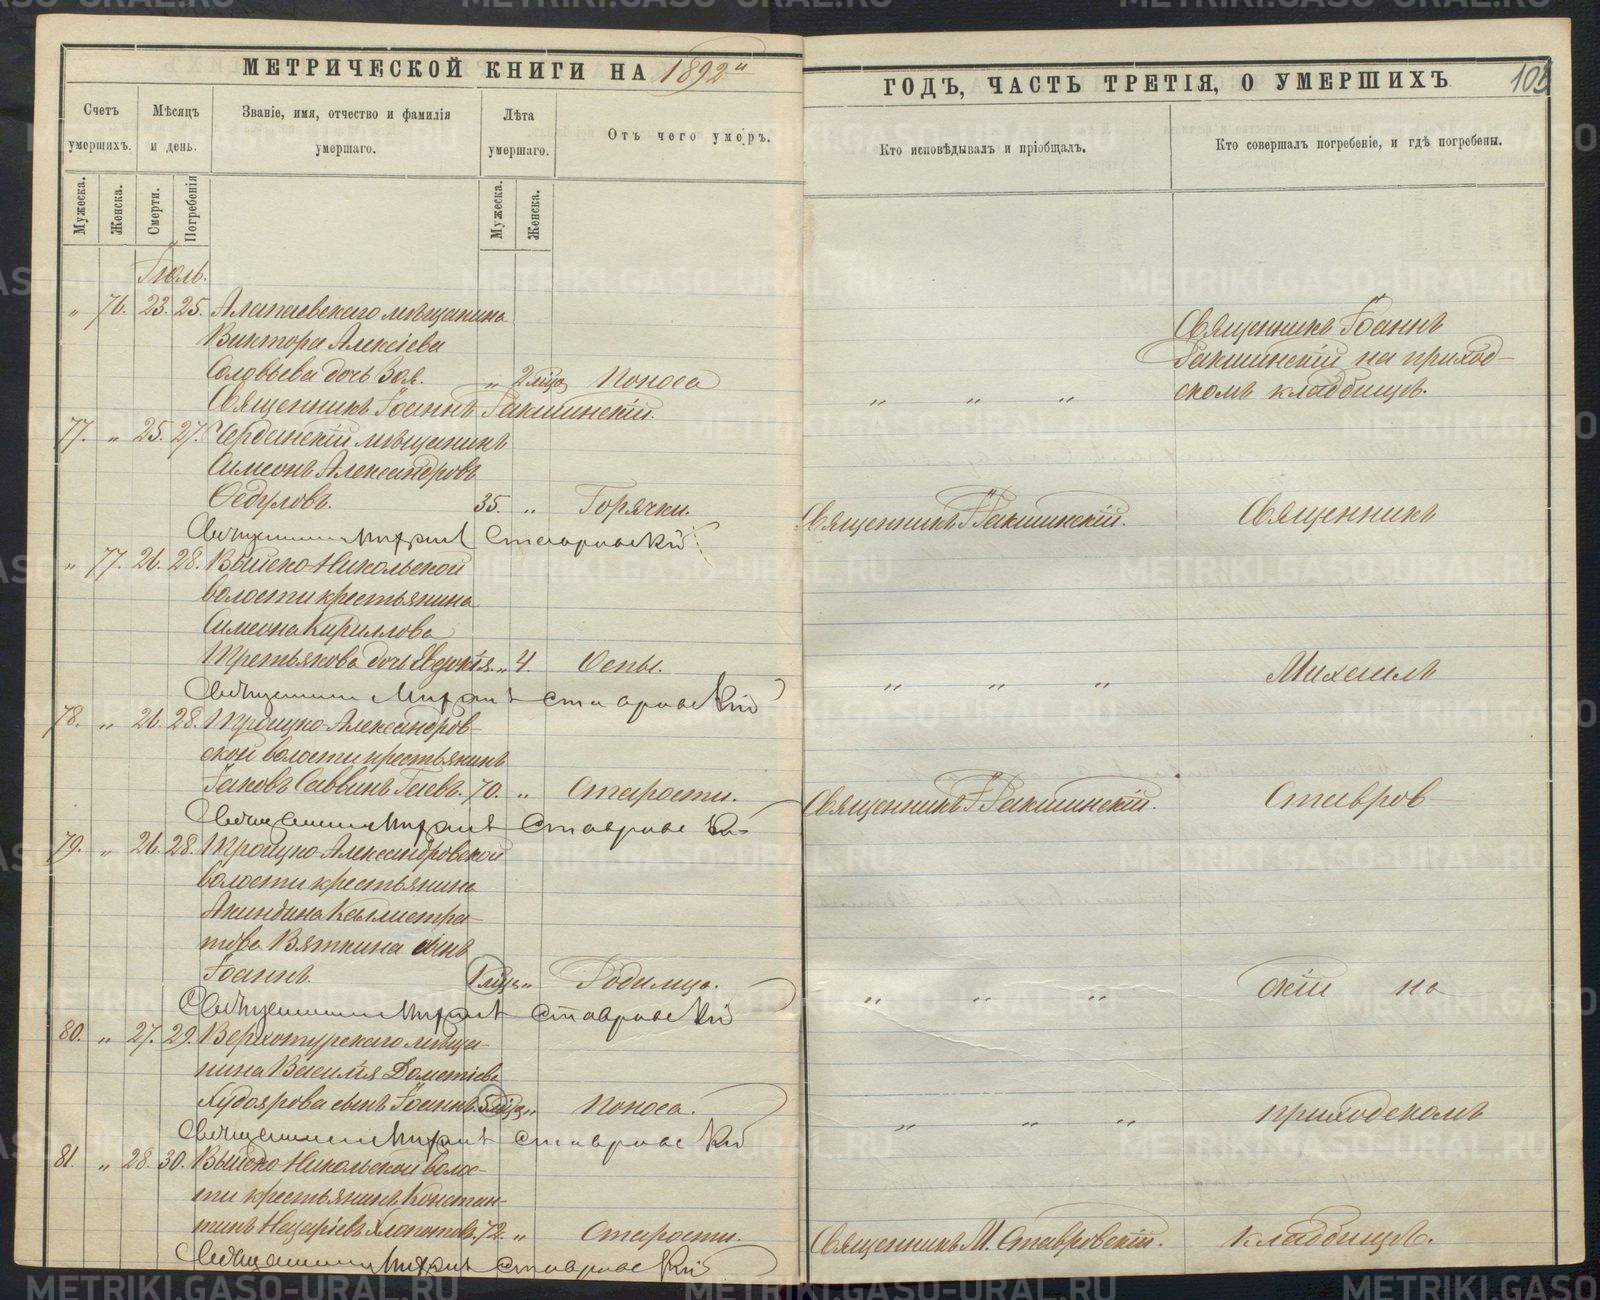 МЕТРИЧЕСКОЙ КНИГИ НА 1892
Счетъ умершихъ.
Мѣсяцъ и день.
Званіе, имя, отчество и фамилія умершаго.
Лѣта умершаго.
Отъ чего умеръ.
Мужеска.
Женска.
Смерти.
Погребенія
Мужеска.
Женска.
Іюль.
„ 76. 23. 25. Алапаевскаго мѣщанина
Виктора Алексіева
Соловьева дочь Зоя. „ 2 мѣс. Поноса
Священникъ Іоаннъ Ракшинскій.
77. „ 25. 27. Чердынскій мѣщанинъ
Симеонъ Александровъ
Федуловъ. 35. „ Горячки.
Священникъ Михаилъ Ставровскій
„ 77. 26. 28. Выйско-Никольской
волости крестьянина
Симеона Кириллова
Третьякова дочь Евдокія. „ 4. Оспы.
Священникъ Михаилъ Ставровскій
78. „ 26. 28. Троицко-Александров-
ской волости крестьянинъ
Іаковъ Саввинъ Гаевъ. 70. „ Старости.
Священникъ Михаилъ Ставровскій
79. „ 26. 28. Троицко-Александровской
волости крестьянина
Акиндина Каллистра-
това Вяткина сынъ
Іоаннъ. 1 мѣс. „ Родимца.
Священникъ Михаилъ Ставровскій
80. „ 27. 29. Верхотурскаго мѣща-
нина Василія Дометіева
Худоярова сынъ Іоаннъ. 5 мѣс. „ Поноса.
Священникъ Михаилъ Ставровскій
81. „ 28. 30. Выйско-Никольской волос-
ти крестьянинъ Констан-
тинъ Назаріевъ Хлопотовъ. 72. „ Старости.
Священникъ Михаилъ Ставровскій
ГОДЪ, ЧАСТЬ ТРЕТІЯ, О УМЕРШИХЪ
103
Кто исповѣдывалъ и пріобщалъ.
Кто совершалъ погребеніе, и гдѣ погребены.
Священникъ Іоаннъ
Ракшинскій на приход-
скомъ кладбищѣ.
„ „ „
Священникъ І. Ракшинскій. Священникъ
„ „ „ Михаилъ
Священникъ І. Ракшинскій. Ставров
„ „ „ скій на
„ „ „ приходскомъ
Священникъ М. Ставровскій. кладбищѣ.
METRIKI.GASO-URAL.RU